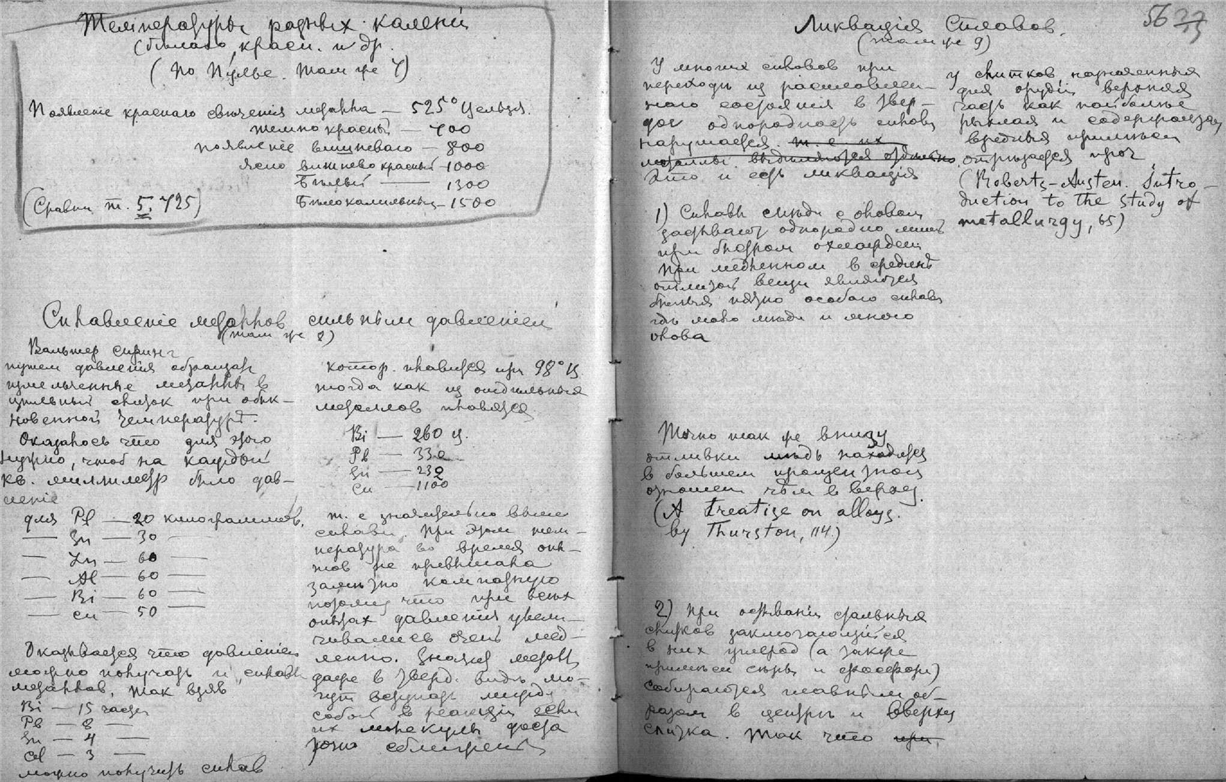 Температуры разных калений
(белаго, красн. и др.
(По Пулье. Там же 7)
Появление краснаго свечения металла — 525° Цельзя.
темно красный — 700
появление вишневаго — 800
ясно вишнево красный — 1000
Белый — 1300
Белокалильный — 1500
(Сравни т. 5, 725)
Сплавление металлов сильным давлением
(там же 8)
Вальтер Спринг
путем давления обращал
измельченные металлы в
цельный слиток при обык-
новенной температуре.
Оказалось что для этого
нужно, чтоб на каждый
кв. миллиметр было дав-
ление
для Pb — 20 килограммов,
— Sn — 30 —
— Zn — 60 —
— Al — 60 —
— Bi — 60 —
— Cu — 50 —
Оказывается что давлением
можно получать и сплавы
металлов, так взяв
Bi — 15 частей
Pb — 8 —
Sn — 4 —
Cd — 3 —
можно получить сплав
котор. плавится при 98° Ц
тогда как из отдельных
металлов плавятся
Bi — 260 Ц.
Pb — 330
Sn — 230
Cu — 1100
т. е значительно выше
сплава. При этом тем-
пература во время опы-
тов не превышала
заметно комнатную
потому что при всех
опытах давления увели-
чивались очень мед-
ленно. Значит металлы
даже в тверд. виде мо-
гут вступать между
собой в реакции если
их молекулы доста
точно сближены
56 33
Ликвация Сплавов.
(там же 9)
У многих сплавов при
переходе из расплавлен-
наго состояния в твер-
дое однородность сплава
нарушается. т. е их
металлы выделяются отдельно
Это и есть ликвация
1) Сплавы меди с оловом
застывают однородно лишь
при быстром охлаждении
При медленном в средине
отлитой вещи является
белыя пятна особаго сплава
где мало меди и много
олова
Точно так же внизу
отливки медь находится
в большем процентном
отношен чем в верху.
(A treatise on alloys.
by Thurston, 114.)
2) При остывании стальных
слитков заключающийся
в них углерод (а также
примеси серы и фосфора)
собирается главным об-
разом в центре и вверху
слитка. Так что при
у слитков назначенных
для орудий верхняя
часть как наиболее
рыхлая и содержащая
вредныя примеси
отрезается проч
(Roberts-Austen. Intro-
duction to the study of
metallurgy, 65)